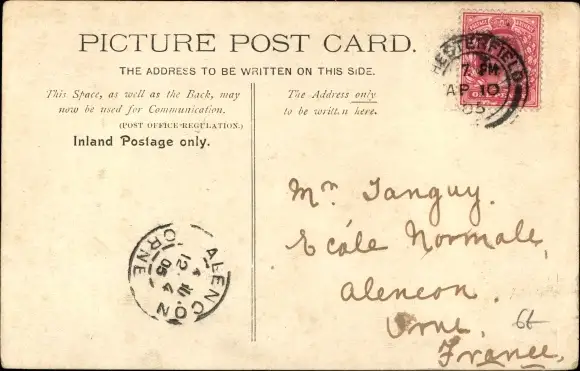 PICTURE POST CARD.
THE ADDRESS TO BE WRITTEN ON THIS SIDE.
This Space, as well as the Back, may
now be used for Communication.
(POST OFFICE REGULATION.)
Inland Postage only.
The Address only
to be written here.
CHESTERFIELD
7. PM
AP 10
05
Mr Tanguy.
Ecole Normale,
Alencon.
Orne.
France.
66
ALENCON
ORNE
12 4
05